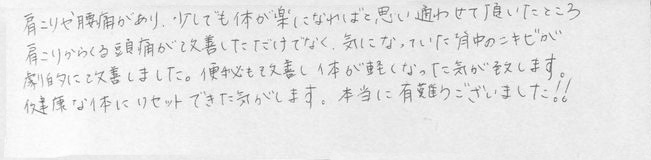 肩こりや腰痛があり、少しでも体が楽になればと思い通わせて頂いたところ
肩こりからくる頭痛が改善しただけでなく、気になっていた背中のニキビが
劇的に改善しました。便秘も改善し体が軽くなった気が致します。
健康な体にリセットできた気がします。本当に有難うございました!!